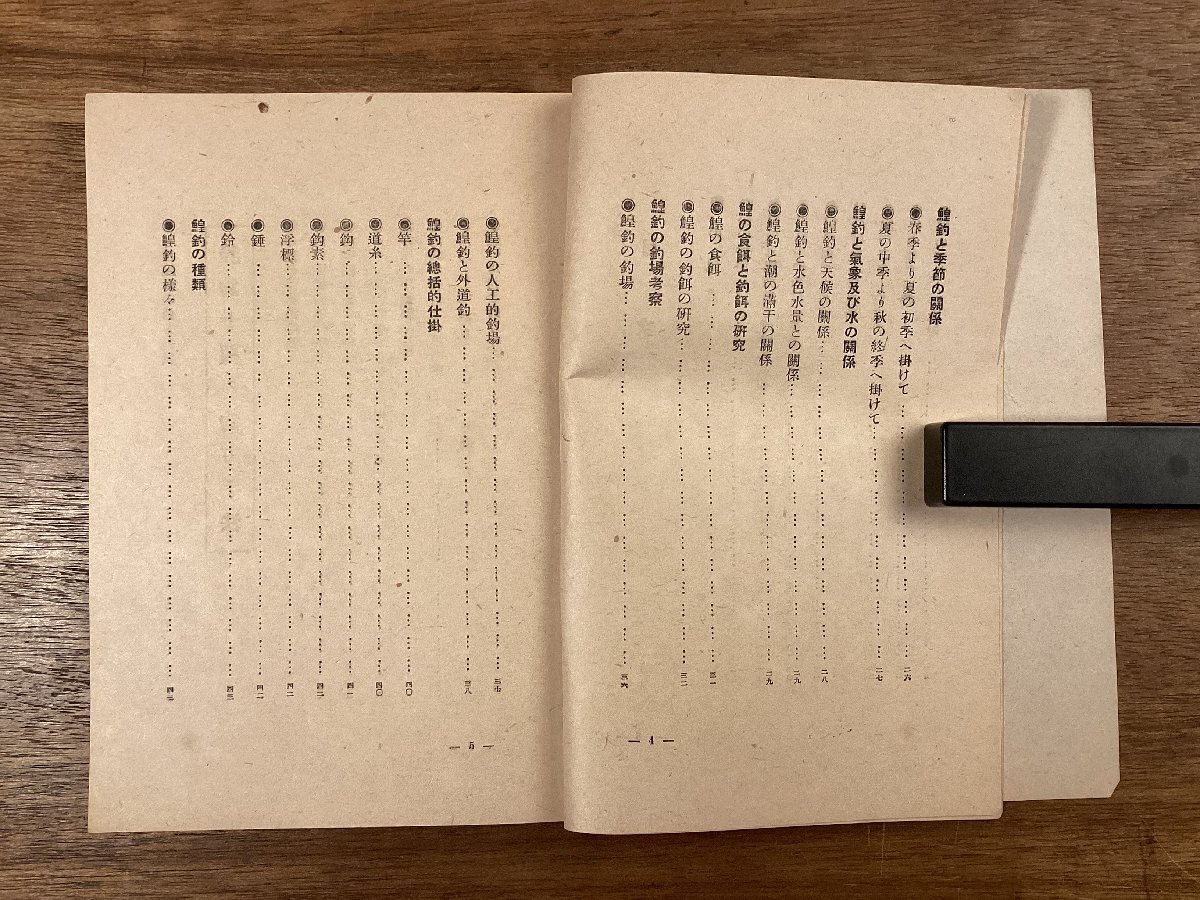 鰉釣と季節の關係
◉春季より夏の初季へ掛けて……二六
◉夏の中季より秋の終季へ掛けて……二七
鰉釣と氣象及び水の關係
◉鰉釣と天候の關係……二八
◉鰉釣と水色水量との關係……二九
◉鰉釣と潮の滿干の關係……二九
鰉の食餌と釣餌の研究
◉鰉の食餌……三一
◉鰉釣の釣餌の研究……三二
鰉釣の釣場考察
◉鰉釣の釣場……三六
— 4 —
◉鰉釣の人工的釣場……三七
◉鰉釣と外道釣……三八
鰉釣の總括的仕掛
◉竿……四〇
◉道糸……四〇
◉鈎……四一
◉鈎素……四二
◉浮標……四二
◉錘……四二
◉鈴……四三
鰉釣の種類
◉鰉釣の樣々……四三
— 5 —